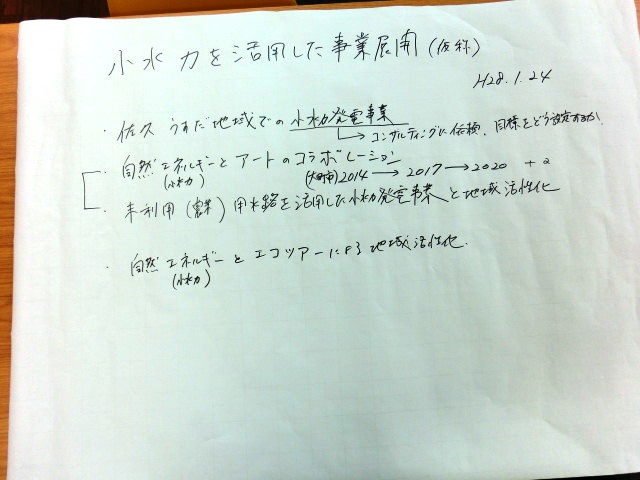 小水力を活用した事業展開(仮称)
H28.1.24
・佐久 うすだ地域での小水力発電事業
→コンサルティングに依頼、目標をどう設定するか
・自然エネルギーとアートのコラボレーション
(小水力) (大町市)2014→2017→2020 +α
・未利用(農業)用水路を活用した小水力発電事業と地域活性化
・自然エネルギーとエコツアーによる地域活性化.
(小水力)